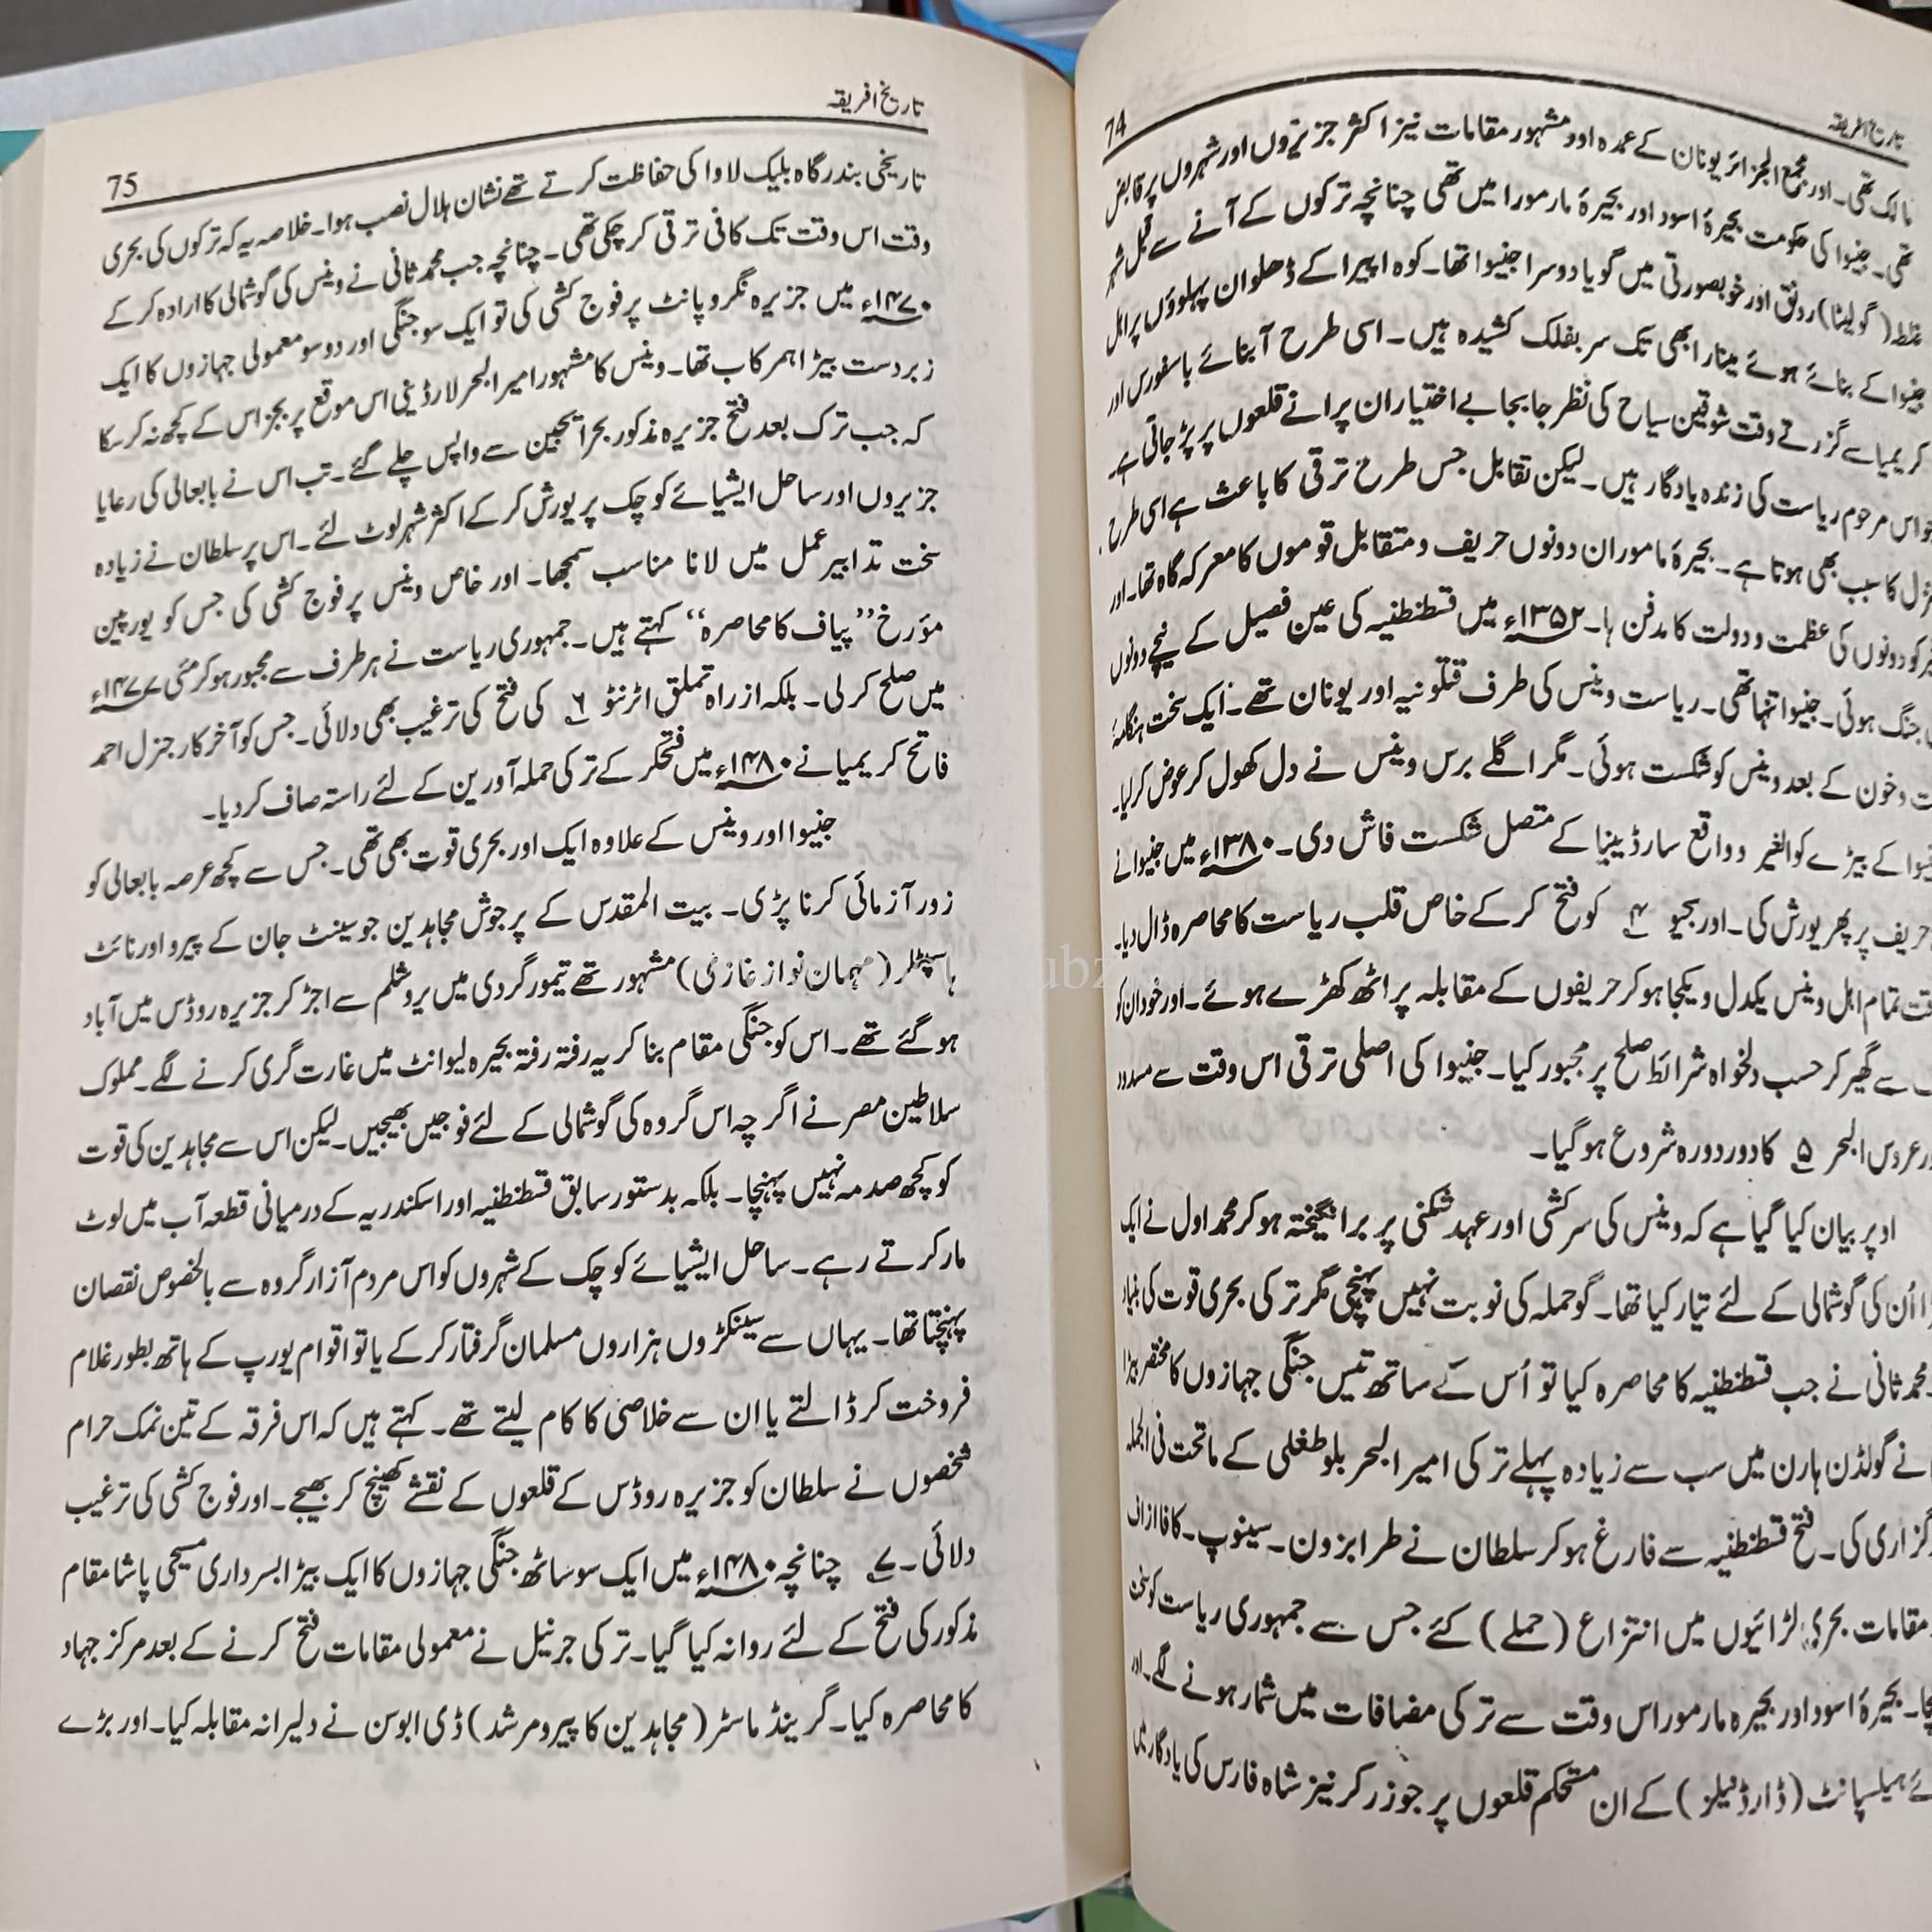 تاریخ افریقہ
74
مالک تھی۔ اور مجمع الجزائر یونان کے عمدہ اور مشہور مقامات نیز اکثر جزیروں اور شہروں پر قابض
تھی۔ جنیوا کی حکومت بحیرۂ اسود اور بحیرۂ مارمورا میں تھی چنانچہ ترکوں کے آنے سے قبل شہر
غلطہ (گولیٹا) رونق اور خوبصورتی میں گویا دوسرا جنیوا تھا۔ کوہ اپیرا کے ڈھلوان پہلوؤں پر اہل
جنیوا کے بنائے ہوئے مینار ابھی تک سر بفلک کشیدہ ہیں۔ اسی طرح آبنائے باسفورس اور
کریمیا سے گزرتے وقت شوقین سیاح کی نظر جابجا بے اختیار ان پرانے قلعوں پر پڑ جاتی ہے۔
جو اس مرحوم ریاست کی زندہ یادگار ہیں۔ لیکن تقابل جس طرح ترقی کا باعث ہے اسی طرح
کا سبب بھی ہوتا ہے۔ بحیرۂ ماموران دونوں حریف و متقابل قوموں کا معرکہ گاہ تھا۔ اور
کو دونوں کی عظمت و دولت کا مدفن ہا۔ ۱۳۵۲ء میں قسطنطنیہ کی عین فصیل کے نیچے دونوں
جنگ ہوئی۔ جنیوا تنہا تھی۔ ریاست وینس کی طرف قتلونیہ اور یونان تھے۔ ایک سخت ہنگامۂ
و خون کے بعد وینس کو شکست ہوئی۔ مگر اگلے برس وینس نے دل کھول کر عوض کر لیا۔
کے بیڑے کو الغیر و واقع سارڈینیا کے متصل شکست فاش دی۔ ۱۳۸۰ء میں جنیوا نے
حریف پر پھر یورش کی۔ اور بجیو ۴ کو فتح کر کے خاص قلب ریاست کا محاصرہ ڈال دیا۔
تمام اہل وینس یکدل و یکجا ہو کر حریفوں کے مقابلہ پر اٹھ کھڑے ہوئے۔ اور خود ان کو
سے گھیر کر حسب دلخواہ شرائط صلح پر مجبور کیا۔ جنیوا کی اصلی ترقی اس وقت سے مسدود
عروس البحر ۵ کا دور دورہ شروع ہو گیا۔
اوپر بیان کیا گیا ہے کہ وینس کی سرکشی اور عہد شکنی پر برانگیختہ ہو کر محمد اول نے ایک
اُن کی گوشمالی کے لئے تیار کیا تھا۔ گو حملہ کی نوبت نہیں پہنچی مگر ترکی بحری قوت کی بنیاد
محمد ثانی نے جب قسطنطنیہ کا محاصرہ کیا تو اُس کے ساتھ تیس جنگی جہازوں کا مختصر بیڑا
نے گولڈن ہارن میں سب سے زیادہ پہلے ترکی امیر البحر بلوطغلی کے ماتحت فی الجملہ
گزاری کی۔ فتح قسطنطنیہ سے فارغ ہو کر سلطان نے طرابزون۔ سینوپ۔ کافا ازاف
مقامات بحری لڑائیوں میں انتزاع (حملے) کئے جس سے جمہوری ریاست کو سخت
بحیرۂ اسود اور بحیرہ مارمورا اس وقت سے ترکی مضافات میں شمار ہونے لگے۔ اور
ہیلسپانٹ (ڈارڈنیلز) کے ان مستحکم قلعوں پر جو زرکر نیز شاہ فارس کی یادگار ہیں
تاریخ افریقہ
75
تاریخی بندرگاہ بلیک لاوا کی حفاظت کرتے تھے نشان ہلال نصب ہوا۔ خلاصہ یہ کہ ترکوں کی بحری
وقت اس وقت تک کافی ترقی کر چکی تھی۔ چنانچہ جب محمد ثانی نے وینس کی گوشمالی کا ارادہ کر کے
۱۴۷۰ء میں جزیرہ نگروپانٹ پر فوج کشی کی تو ایک سو جنگی اور دو سو معمولی جہازوں کا ایک
زبردست بیڑا ہمرکاب تھا۔ وینس کا مشہور امیر البحر لارڈینی اس موقع پر بجز اس کے کچھ نہ کر سکا
کہ جب ترک بعد فتح جزیرہ مذکور بحر ایجین سے واپس چلے گئے۔ تب اس نے بابعالی کی رعایا
جزیروں اور ساحل ایشیائے کوچک پر یورش کر کے اکثر شہر لوٹ لئے۔ اس پر سلطان نے زیادہ
سخت تدابیر عمل میں لانا مناسب سمجھا۔ اور خاص وینس پر فوج کشی کی جس کو یورپین
مؤرخ ’’پیاف کا محاصرہ‘‘ کہتے ہیں۔ جمہوری ریاست نے ہر طرف سے مجبور ہو کر مئی ۱۴۷۷ء
میں صلح کر لی۔ بلکہ از راہ تملق اٹرنٹو ۶ کی فتح کی ترغیب بھی دلائی۔ جس کو آخر کار جنرل احمد
فاتح کریمیا نے ۱۴۸۰ء میں فتح کر کے ترکی حملہ آورین کے لئے راستہ صاف کر دیا۔
جنیوا اور وینس کے علاوہ ایک اور بحری قوت بھی تھی۔ جس سے کچھ عرصہ بابعالی کو
زور آزمائی کرنا پڑی۔ بیت المقدس کے پرجوش مجاہدین جو سینٹ جان کے پیرو اور نائٹ
ہاسپٹلر (مہمان نواز غازی) مشہور تھے تیمور گردی میں یروشلم سے اجڑ کر جزیرہ روڈس میں آباد
ہو گئے تھے۔ اس کو جنگی مقام بنا کر یہ رفتہ رفتہ بحیرہ لیوانٹ میں غارت گری کرنے لگے۔ مملوک
سلاطین مصر نے اگرچہ اس گروہ کی گوشمالی کے لئے فوجیں بھیجیں۔ لیکن اس سے مجاہدین کی قوت
کو کچھ صدمہ نہیں پہنچا۔ بلکہ بدستور سابق قسطنطنیہ اور اسکندریہ کے درمیانی قطعہ آب میں لوٹ
مار کرتے رہے۔ ساحل ایشیائے کوچک کے شہروں کو اس مردم آزار گروہ سے بالخصوص نقصان
پہنچتا تھا۔ یہاں سے سینکڑوں ہزاروں مسلمان گرفتار کر کے یا تو اقوام یورپ کے ہاتھ بطور غلام
فروخت کر ڈالتے یا ان سے خلاصی کا کام لیتے تھے۔ کہتے ہیں کہ اس فرقہ کے تین نمک حرام
شخصوں نے سلطان کو جزیرہ روڈس کے قلعوں کے نقشے کھینچ کر بھیجے۔ اور فوج کشی کی ترغیب
دلائی۔ ۷ چنانچہ ۱۴۸۰ء میں ایک سو ساٹھ جنگی جہازوں کا ایک بیڑا بسرداری مسیحی پاشا مقام
مذکور کی فتح کے لئے روانہ کیا گیا۔ ترکی جرنیل نے معمولی مقامات فتح کرنے کے بعد مرکز جہاد
کا محاصرہ کیا۔ گرینڈ ماسٹر (مجاہدین کا پیر و مرشد) ڈی ابوسن نے دلیرانہ مقابلہ کیا۔ اور بڑے